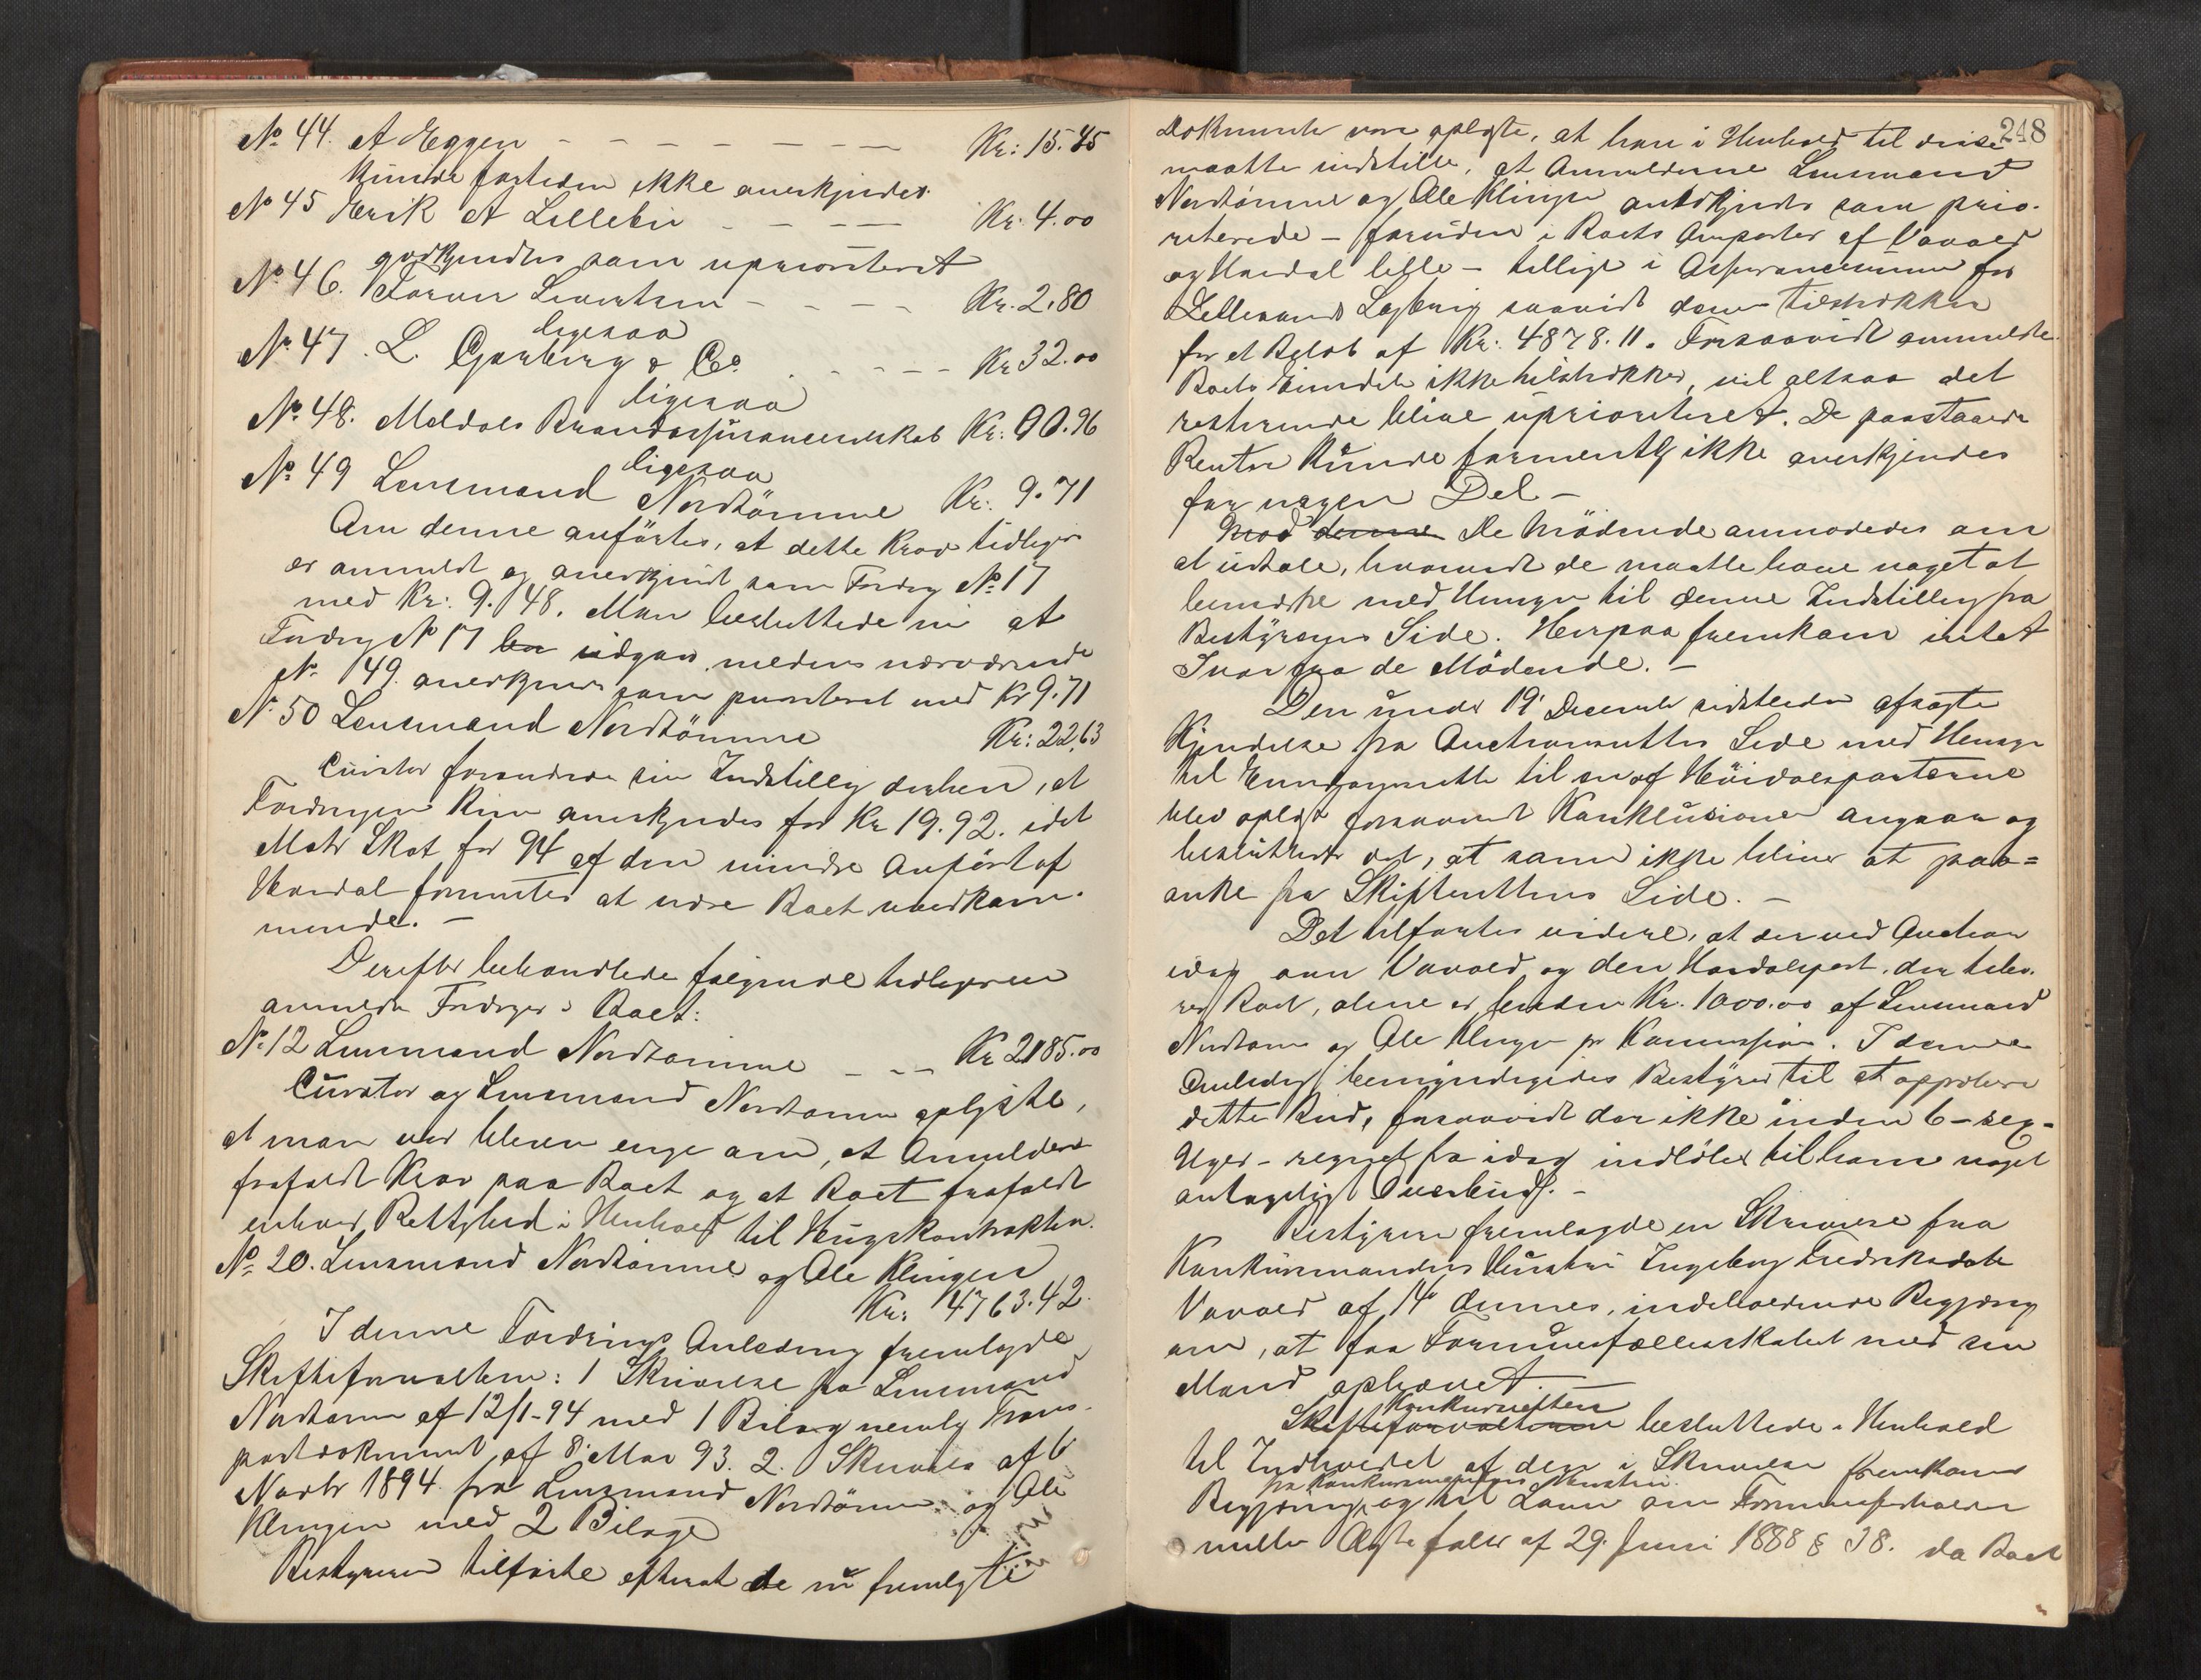 No 44. A Eggen - - - - - - - Kr: 15.45
kunde fortiden ikke anerkjendes
No 45 Erik A Lillebu - - - - Kr. 4.00
godkjendtes som uprioriteret
No 46. Sivertsen - - - - Kr. 2.80
ligesaa
No 47. L. Garberg & Co. - - - - Kr 32.00
ligesaa
No 48. Meldals Brandassuranceselskab Kr: 90.96
ligesaa
No 49 Lensmand Nordtömme Kr: 9.71
Om denne anförtes, at dette Krav tidligere
er anmeldt og anerkjendt som Fordrg No 17
med Kr: 9.48. Man besluttede nu at
Fordrg No 17 udgaar, medens nærværende
No 49. anerkjendes som prioriteret med Kr 9.71
No 50 Lensmand Nordtömme Kr: 22,63
Curator forandrede sin Indstilling derhen, at
Fordringen kun anerkjendes for Kr 19.92. idet
Matr Skat for 94 af den mindre Anpart af
Hordal formentes at være Boet uvedkom-
mende. -
Derefter behandledes følgende tidligere
anmeldte Fordrger i Boet:
No 12 Lensmand Nordtömme - - - Kr 2185.00
Curator og Lensmand Nordtömme oplyste,
at man var bleven enige om, at Anmelderen
frafaldt Krav paa Boet og at Boet frafaldt
enhver Rettighed i Henhold til Hugskontrakten.
No 20. Lensmand Nordtömme og Ole Klingen
Kr: 4763.42.
I denne Fordrings Anledning fremlagde
Skifteforvalteren: 1 Skrivelse fra Lensmand
Nordtömme af 12/1-94 med 1 Bilag nemlig Trans-
portdokument af 8. Mar 93. 2. Skrivelse af 6
Novbr 1894 fra Lensmand Nordtömme og Ole
Klingen med 2 Bilage
Bestyreren tilførte efterat de nu fremlagte
248
Dokumenter vare oplæste, at han i Henhold til disse
maatte indstille, at Anmelderne Lensmand
Nordtömme og Ole Klingen anerkjendes som prio-
riterede - foruden i Boets Anparter af Vavold
og Hordal lille - tillige i Assurancesummen for
Bygning saavidt denne tilstrækker
for et Beløb af Kr: 4878.11. Forsaavidt anmeldte
Boets Eiendele ikke tilstrækker, vil altsaa det
resterende blive uprioriteret. De paastaaede
Renter kunde formentlig ikke anerkjendes
for nogen Del -
Mod denne De Mödende anmodedes om
at udtale, hvorvidt de maatte have noget at
bemærke med Hensyn til denne Indstilling fra
Bestyrerens Side. Herpaa fremkom intet
Svar fra de Mödende. -
Den under 19' December sidstleden afsagte
Kjendelse fra Auctionsrettens Side med Hensyn
til til en af Höidalsparterne
blev oplæst forsaavidt Konklusionen angaar og
besluttedes det, at samme ikke bliver at paa=
anke fra Skifterettens Side. -
Det tilførtes videre, at der ved Auction
idag over Vavold og den Hordalspart, der tilhø-
rer Boet, alene er budden Kr. 1000.00 af Lensmand
Nordtömme og Ole Klingen pr Kommission. I denne
Anledning bemyndigedes Bestyrer til at approbere
dette Bud, forsaavidt der ikke inden 6 - sex -
Uger - regnet fra idag indløber til ham noget
antageligt Overbud. -
Bestyreren fremlagde en Skrivelse fra
Konkursmandens Hustru Ingeborg Fredriksdatter
Vavold af 14' dennes, indeholdende Begjæring
om, at faa Formuesfællesskabet med sin
Mand ophævet. -
Konkursretten
Skifteforvalteren besluttede i Henhold
til Indholdet af den i Skrivelse fremkomne
fra Konkursmandens Hustru
Begjæring og til Loven om Formuesforholdet
mellem Ægtefæller af 29. Juni 1888 § 38. da Boet